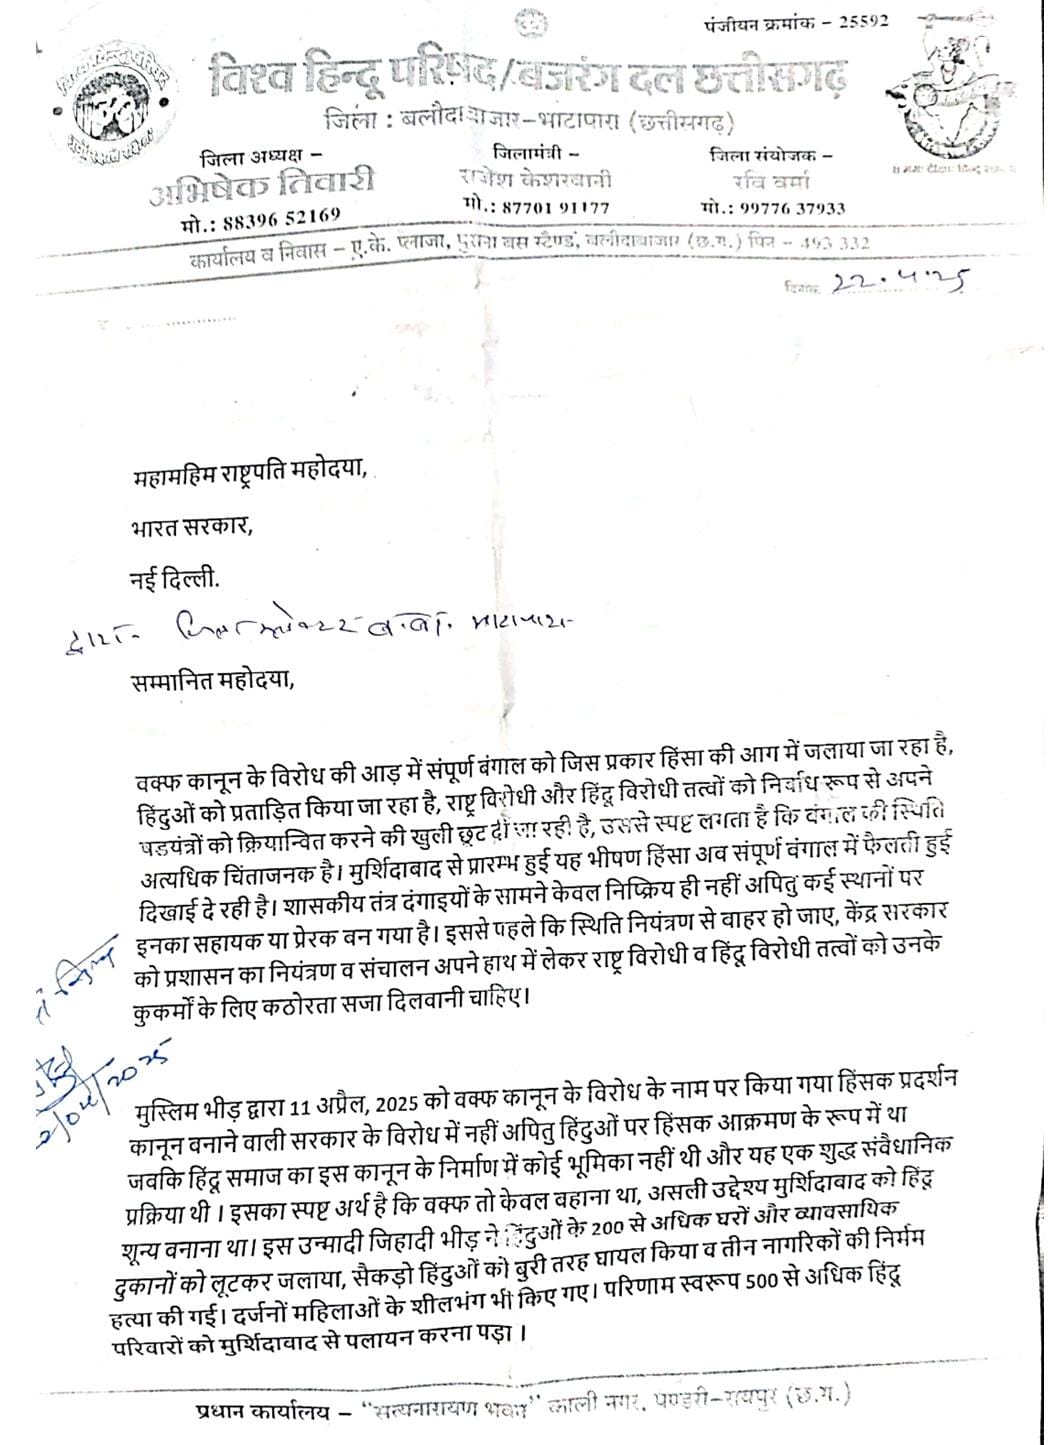 पंजीयन क्रमांक – 25592
विश्व हिन्दू परिषद/बजरंग दल छत्तीसगढ़
जिला : बलौदाबाजार–भाटापारा (छत्तीसगढ़)
जिला अध्यक्ष –
अभिषेक तिवारी
मो.: 88396 52169
जिलामंत्री –
राजेश केशरवानी
मो.: 87701 91177
जिला संयोजक –
रवि वर्मा
मो.: 99776 37933
कार्यालय व निवास – ए.के. प्लाजा, पुराना बस स्टैण्ड, बलौदाबाजार (छ.ग.) पिन – 493 332
दिनांक 22.4.25
महामहिम राष्ट्रपति महोदया,
भारत सरकार,
नई दिल्ली.
द्वारा- जिला कलेक्टर ब.बा. भाटापारा
सम्मानित महोदया,
वक्फ कानून के विरोध की आड़ में संपूर्ण बंगाल को जिस प्रकार हिंसा की आग में जलाया जा रहा है,
हिंदुओं को प्रताड़ित किया जा रहा है, राष्ट्र विरोधी और हिंदू विरोधी तत्वों को निर्वाध रूप से अपने
षडयंत्रों को क्रियान्वित करने की खुली छूट दी जा रही है, उससे स्पष्ट लगता है कि बंगाल की स्थिति
अत्यधिक चिंताजनक है। मुर्शिदाबाद से प्रारम्भ हुई यह भीषण हिंसा अब संपूर्ण बंगाल में फैलती हुई
दिखाई दे रही है। शासकीय तंत्र दंगाइयों के सामने केवल निष्क्रिय ही नहीं अपितु कई स्थानों पर
इनका सहायक या प्रेरक बन गया है। इससे पहले कि स्थिति नियंत्रण से वाहर हो जाए, केंद्र सरकार
को प्रशासन का नियंत्रण व संचालन अपने हाथ में लेकर राष्ट्र विरोधी व हिंदू विरोधी तत्वों को उनके
कुकर्मों के लिए कठोरता सजा दिलवानी चाहिए।
मुस्लिम भीड़ द्वारा 11 अप्रैल, 2025 को वक्फ कानून के विरोध के नाम पर किया गया हिंसक प्रदर्शन
कानून बनाने वाली सरकार के विरोध में नहीं अपितु हिंदुओं पर हिंसक आक्रमण के रूप में था
जबकि हिंदू समाज का इस कानून के निर्माण में कोई भूमिका नहीं थी और यह एक शुद्ध संवैधानिक
प्रक्रिया थी । इसका स्पष्ट अर्थ है कि वक्फ तो केवल वहाना था, असली उद्देश्य मुर्शिदाबाद को हिंदू
शून्य वनाना था। इस उन्मादी जिहादी भीड़ ने हिंदुओं के 200 से अधिक घरों और व्यावसायिक
दुकानों को लूटकर जलाया, सैकड़ो हिंदुओं को बुरी तरह घायल किया व तीन नागरिकों की निर्मम
हत्या की गई। दर्जनों महिलाओं के शीलभंग भी किए गए। परिणाम स्वरूप 500 से अधिक हिंदू
परिवारों को मुर्शिदावाद से पलायन करना पड़ा ।
प्रधान कार्यालय – "सत्यनारायण भवन" काली नगर, पण्डरी–रायपुर (छ.ग.)